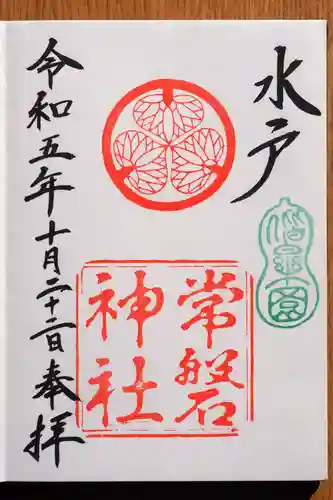 水戸
偕楽園
常磐
神社
令和五年十月二十二日奉拝